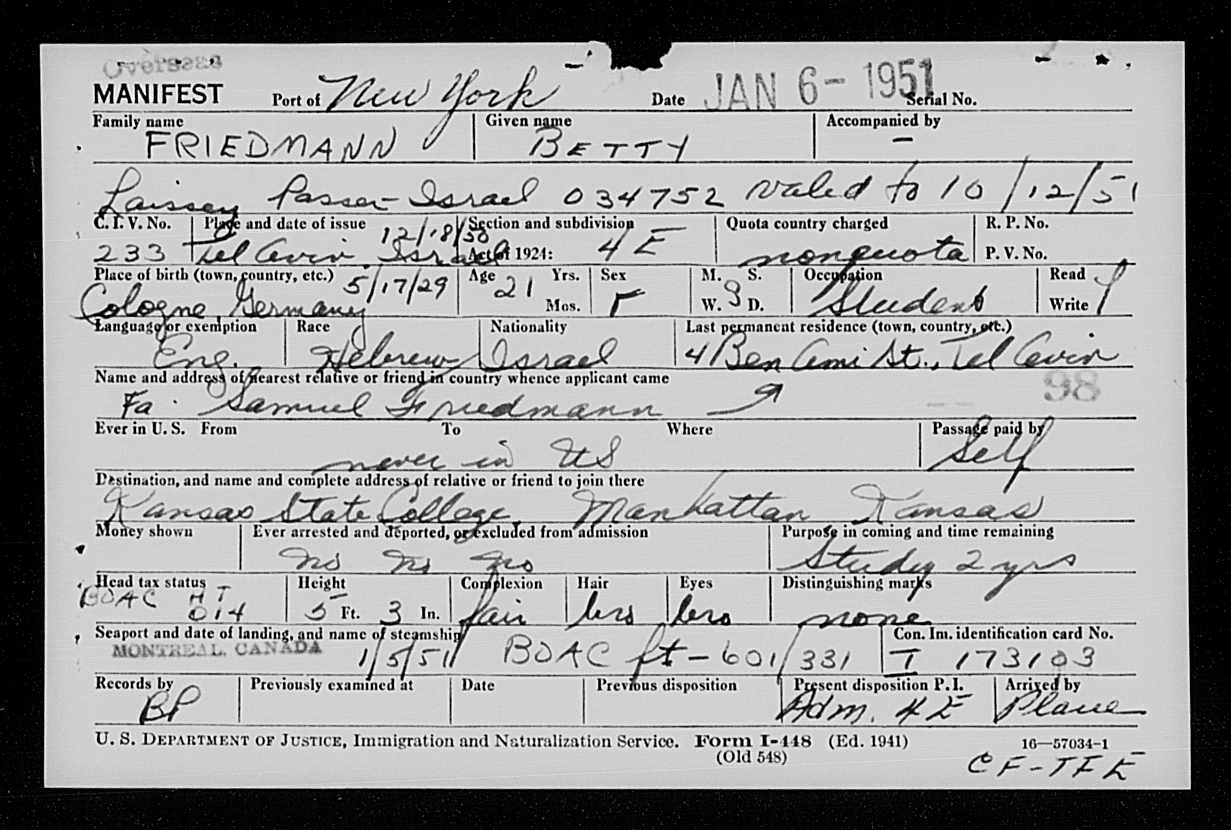 Overseas
MANIFEST Port of New York Date JAN 6 - 1951 Serial No.
Family name Given name Accompanied by
FRIEDMANN BETTY –
Laissez Passer - Israel 034752 valid to 10/12/51
C. I. V. No. Place and date of issue 12/18/50 Section and subdivision Quota country charged R. P. No.
233 Tel Aviv, Israel Act of 1924: 4 E nonquota P. V. No.
Place of birth (town, country, etc.) 5/17/29 Age 21 Yrs. Sex M. S. Occupation Read
Cologne, Germany Mos. F W. D. Student Write
Language or exemption Race Nationality Last permanent residence (town, country, etc.)
Eng. Hebrew Israel 4 Ben Ami St., Tel Aviv
Name and address of nearest relative or friend in country whence applicant came
Fa. Samuel Friedmann 98
Ever in U. S. From To Where Passage paid by
never in US Self
Destination, and name and complete address of relative or friend to join there
Kansas State College, Manhattan Kansas
Money shown Ever arrested and deported, or excluded from admission Purpose in coming and time remaining
No No No Study 2 yrs
Head tax status Height Complexion Hair Eyes Distinguishing marks
BOAC HT 014 5 Ft. 3 In. fair bro bro none
Seaport and date of landing, and name of steamship Con. Im. identification card No.
MONTREAL, CANADA 1/5/51 BOAC flt - 601/331 T 173103
Records by Previously examined at Date Previous disposition Present disposition P. I. Arrived by
BP Adm. 4 E Plane
U. S. DEPARTMENT OF JUSTICE, Immigration and Naturalization Service. Form I-448 (Ed. 1941) 16—57034-1
(Old 548)
CF-TFE